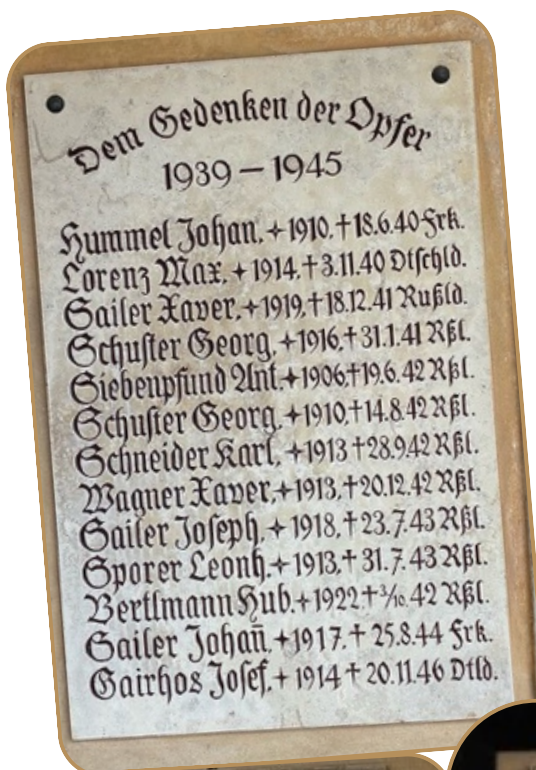 Dem Gedenken der Opfer
1939 – 1945
Hummel Johan. + 1910. † 18.6.40 Frk.
Lorenz Max. + 1914. † 3.11.40 Dtschld.
Sailer Xaver. + 1919. † 18.12.41 Rußld.
Schuster Georg. + 1916. † 31.1.41 Rßl.
Siebenpfund Ant. + 1906. † 19.6.42 Rßl.
Schuster Georg. + 1910. † 14.8.42 Rßl.
Schneider Karl. + 1913 † 28.9.42 Rßl.
Wagner Xaver. + 1913. † 20.12.42 Rßl.
Sailer Joseph. + 1918. † 23.7.43 Rßl.
Sporer Leonh. + 1913. † 31.7.43 Rßl.
Bertlmann Hub. + 1922 † 3/10.42 Rßl.
Sailer Johan̄. + 1917. † 25.8.44 Frk.
Gairhos Josef. + 1914 † 20.11.46 Dtld.